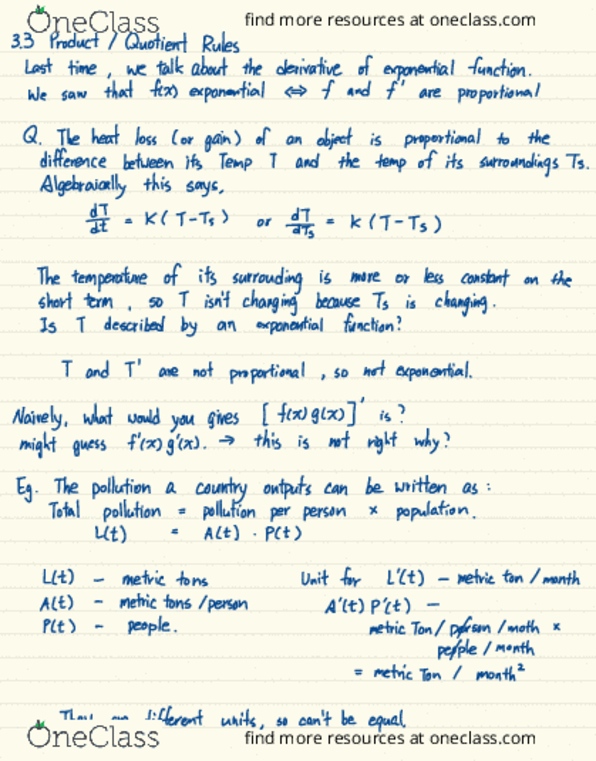 OneClass find more resources at oneclass.com
3.3 Product / Quotient Rules
Last time, we talk about the derivative of exponential function.
We saw that f(x) exponential ⇔ f and f' are proportional
Q. The heat loss (or gain) of an object is proportional to the
difference between its Temp T and the temp of its surroundings Ts.
Algebraically this says,
dT/dt = K(T-Ts) or dT/dTs = K(T-Ts)
The temperature of its surrouding is more or less constant on the
short term, so T isn't changing because Ts is changing.
Is T described by an exponential function?
T and T' are not proportional, so not exponential.
Naively, what would you gives [f(x)g(x)]' is?
might guess f'(x)g'(x). → this is not right why?
Eg. The pollution a country outputs can be written as:
Total pollution = pollution per person × population.
L(t) = A(t) · P(t)
L(t) - metric tons
A(t) - metric tons/person
P(t) - people.
Unit for L'(t) - metric ton/month
A'(t)P'(t) -
metric Ton/person/moth ×
people/month
= metric Ton / month²
different units, so can't be equal.
OneClass find more resources at oneclass.com